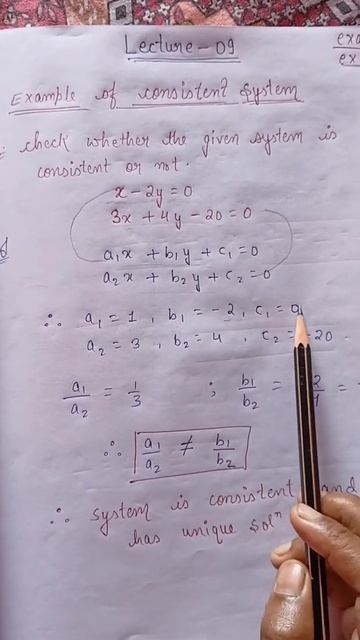 Lecture-09
exa
ex
Example of consistent system
check whether the given system is
consistent or not.
x - 2y = 0
3x + 4y - 20 = 0
a₁x + b₁y + c₁ = 0
a₂x + b₂y + c₂ = 0
∴ a₁ = 1, b₁ = -2, c₁ = 0
a₂ = 3, b₂ = 4, c₂ = -20
a₁/a₂ = 1/3 ; b₁/b₂ =
∴ a₁/a₂ ≠ b₁/b₂
∴ system is consistent and
has unique solⁿ